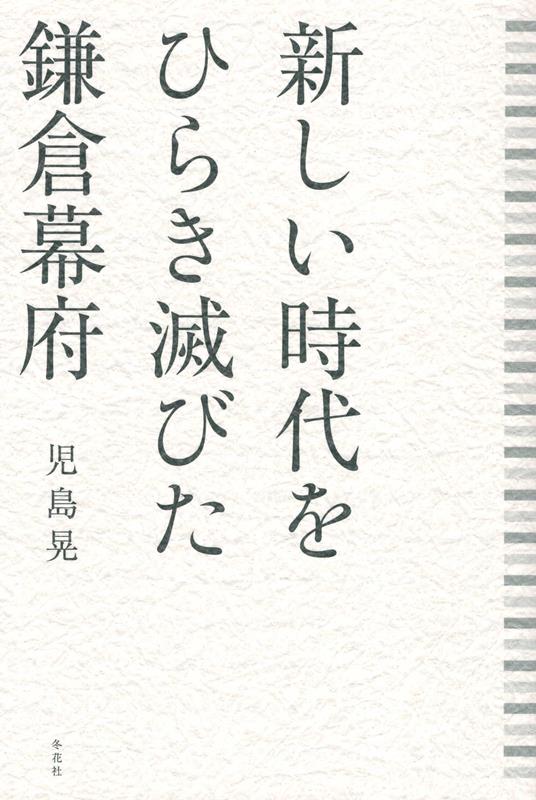 新しい時代を
ひらき滅びた
鎌倉幕府
児島晃
冬花社